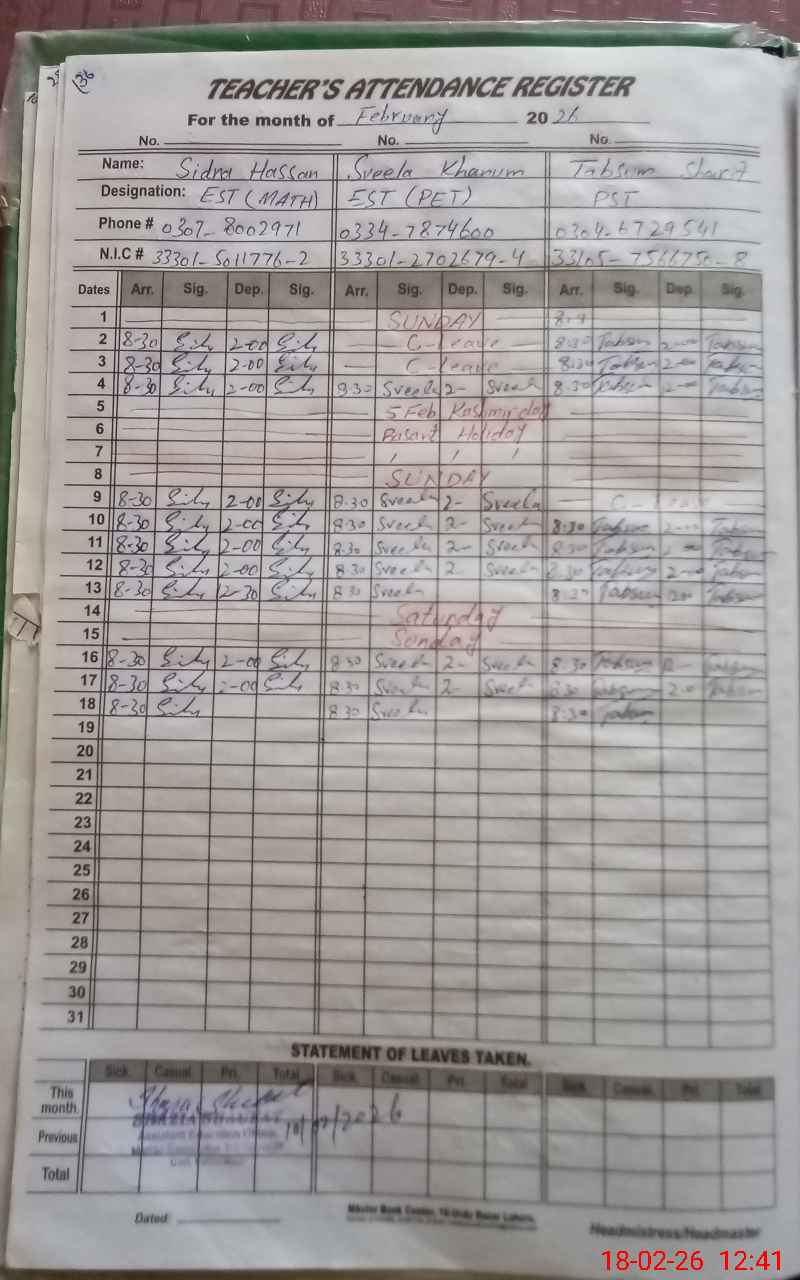 136
TEACHER'S ATTENDANCE REGISTER
For the month of February 2026
No. No. No.
Name: Sidra Hassan Sveela Khanum Tabsum
Designation: EST (MATH) EST (PET) PST
Phone # 0307-8002971 0334-7874600 0304-6729541
N.I.C # 33301-5011776-2 33301-2702679-4 33105-7566750-8
Dates Arr. Sig. Dep. Sig. Arr. Sig. Dep. Sig. Arr. Sig. Dep. Sig.
1 SUNDAY
2 8-30 2-00 C-Leave 8:30 Tabsum 2-00 Tabsum
3 8-30 2-00 C-Leave 8:30 Tabsum 2-00 Tabsum
4 8-30 2-00 8:30 Sveela 2- Sveela 8:30 Tabsum 2-00 Tabsum
5 5 Feb Kashmir day
6 Basant Holiday
7 ' ' '
8 SUNDAY
9 8-30 2-00 8:30 Sveela 2- Sveela C-Leave
10 8-30 2-00 8:30 Sveela 2- Sveela 8:30 Tabsum 2-00 Tabsum
11 8-30 2-00 8:30 Sveela 2- Sveela 8:30 Tabsum 2-00 Tabsum
12 8-30 2-00 8:30 Sveela 2- Sveela 8:30 Tabsum 2-00 Tabsum
13 8-30 2-30 8:30 Sveela 8:30 Tabsum Tabsum
14 Saturday
15 Sunday
16 8-30 2-00 8:30 Sveela 2- Sveela 8:30 Tabsum Tabsum
17 8-30 2-00 8:30 Sveela 2- Sveela 8:30 Tabsum 2-00 Tabsum
18 8-30 8:30 Sveela 8:30 Tabsum
19
20
21
22
23
24
25
26
27
28
29
30
31
STATEMENT OF LEAVES TAKEN.
Sick Casual Pri. Total Sick Casual Pri. Total Sick Casual Pri. Total
This month
Previous
Total
18/02/2026
Dated
Headmistress/Headmaster
18-02-26 12:41